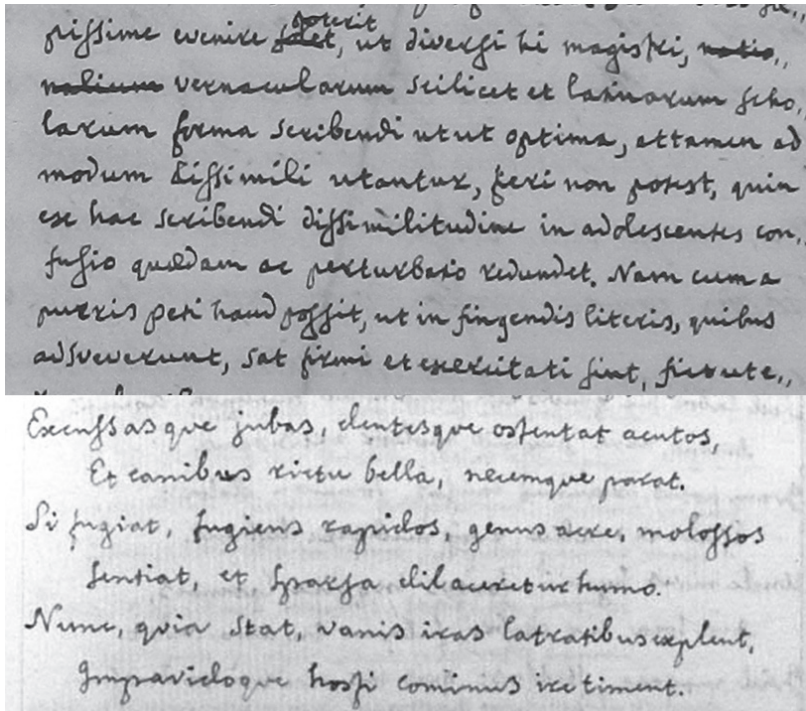 poterit
pissime evenire solet, ut diversi hi magistri, natio,,
nalium vernacularum scilicet et latinarum scho,,
larum forma scribendi utut optima, attamen ad
modum dissimili utantur, fieri non potest, quin
ex hac scribendi dissimilitudine in adolescentes con,,
fusio quædam ac perturbatio redundet. Nam cum a
pueris peti haud possit, ut in fingendis literis, quibus
adsveverunt, sat firmi et exercitati sint, fit ut e,,
Excussasque jubas, dentesque ostentat acutos,
Et canibus rictu bella, necemque parat.
Si fugiat, fugiens rapidos, genus acre, molossos
Sentiat, et sparsa dilaceretur humo.
Nunc, quia stat, vanis iras latratibus explent,
Impavidoque hosti cominus ire timent.